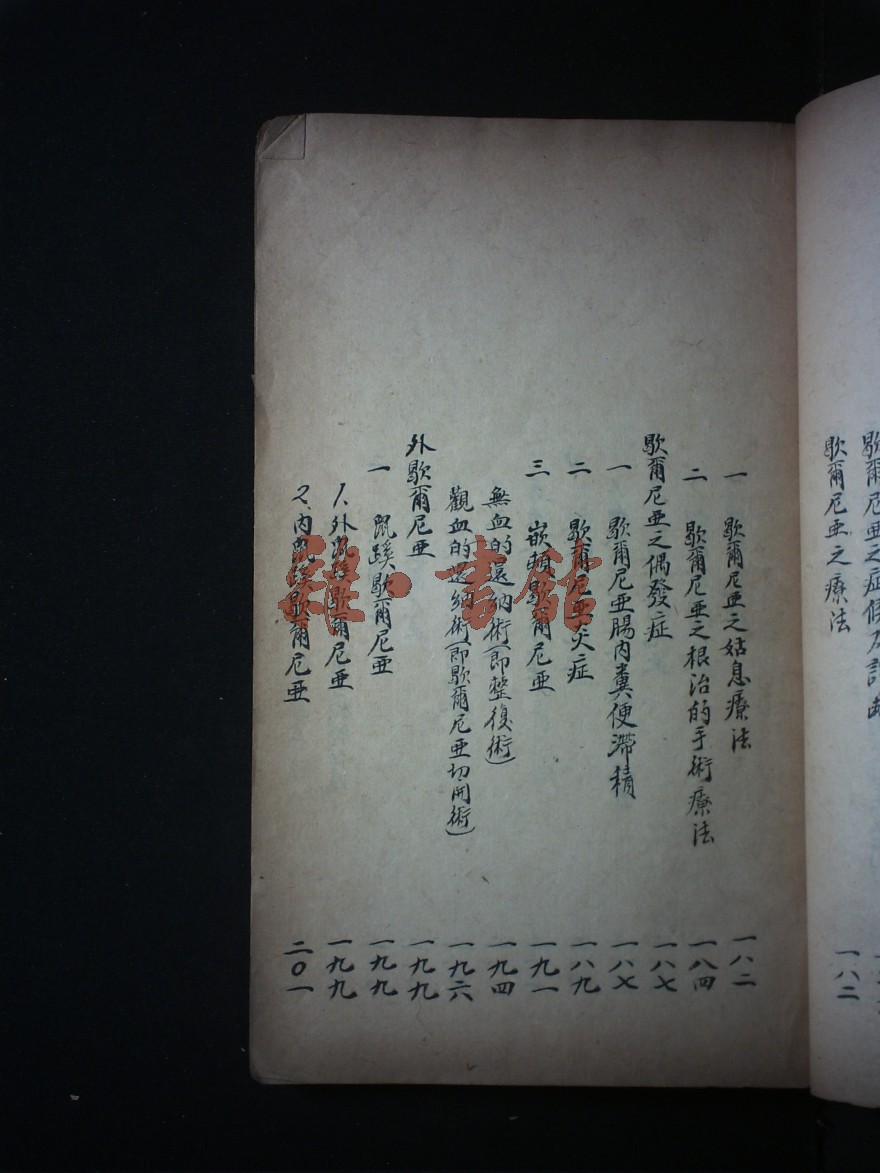 歇爾尼亜之症候及診
歇爾尼亜之療法 一八二
一 歇爾尼亜之姑息療法 一八二
二 歇爾尼亜之根治的手術療法 一八四
歇爾尼亜之偶發症 一八七
一 歇爾尼亜腸内糞便滯積 一八七
二 歇爾尼亜炎症 一八九
三 嵌頓歇爾尼亜 一九一
無血的還納術(即整復術) 一九四
觀血的還納術(即歇爾尼亜切開術) 一九六
外歇爾尼亜 一九九
一 鼠蹊歇爾尼亜 一九九
1、外鼠蹊歇爾尼亜 一九九
2、内鼠蹊歇爾尼亜 二〇一
書館